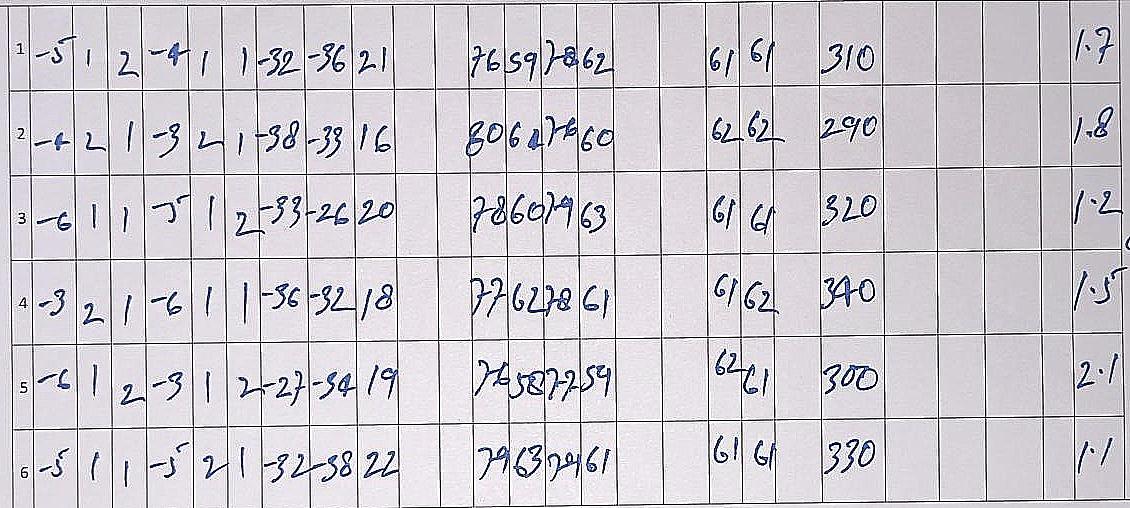 1 -5 1 2 -4 1 1 -32 -36 21 76 59 78 62 61 61 310 1.7
2 -4 2 1 -3 2 1 -38 -33 16 80 61 76 60 62 62 290 1.8
3 -6 1 1 -5 1 2 -33 -26 20 78 60 79 63 61 61 320 1.2
4 -3 2 1 -6 1 1 -36 -32 18 77 62 78 61 61 62 340 1.5
5 -6 1 2 -3 1 2 -27 -34 19 76 58 77 59 62 61 300 2.1
6 -5 1 1 -5 2 1 -32 -38 22 79 63 79 61 61 61 330 1.1